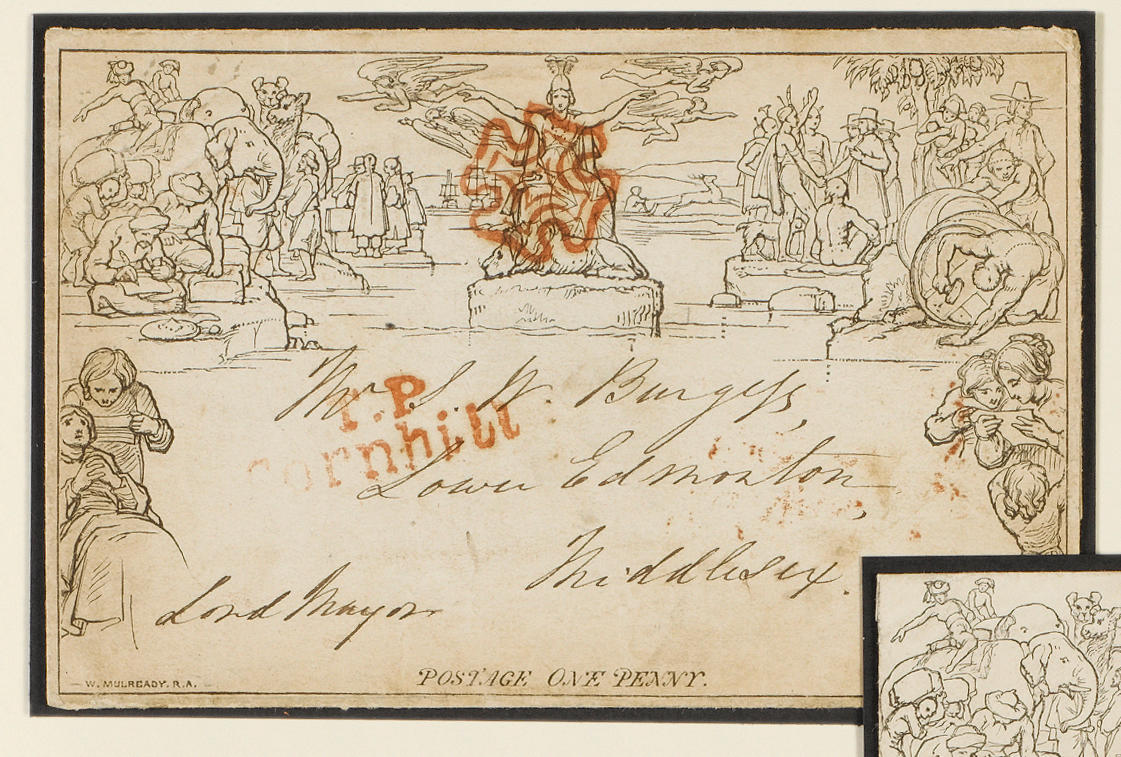 Mr S. W. Burgess,
T.P
Cornhill
Lower Edmonton,
Middlesex.
Lord Mayor
POSTAGE ONE PENNY.
W. MULREADY. R.A.